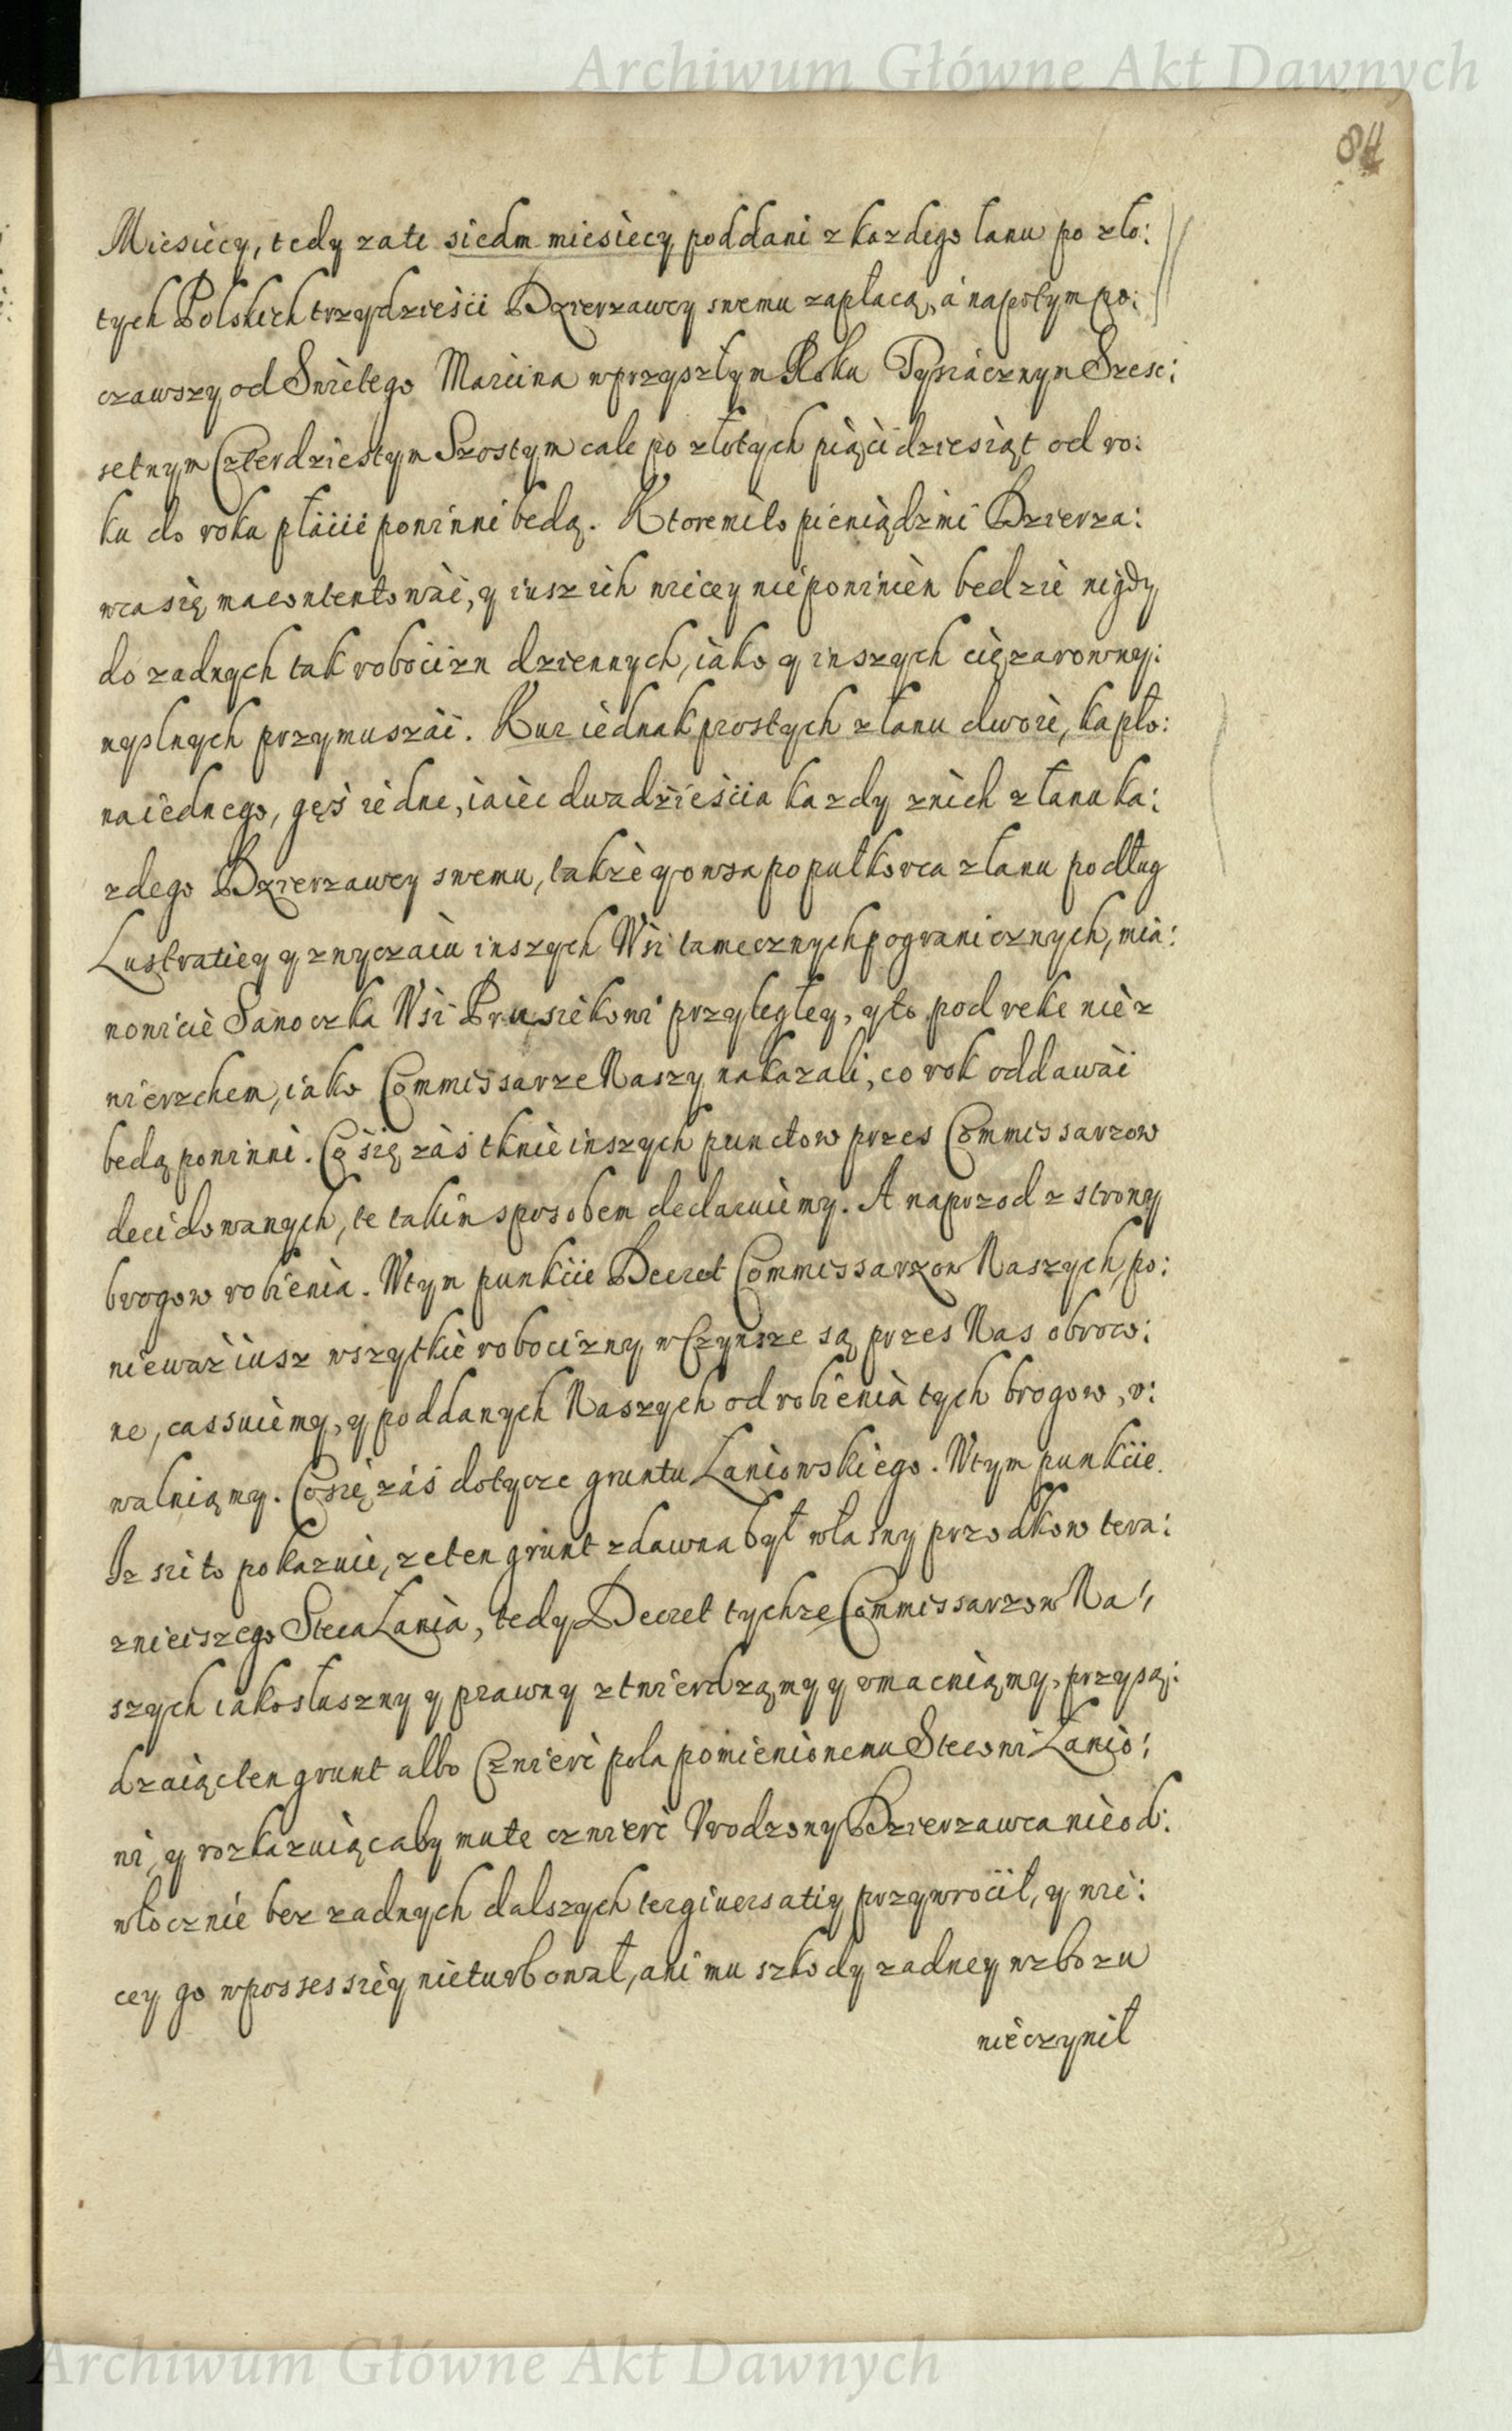 Archiwum Główne Akt Dawnych
84
Miesiecy, tedy za te siedm miesiecy poddani z kazdego lanu po zlo:
tych Polskich trzydziesci Dzierzawcy swemu zapłacą, á napotym po:
czawszy od Swietego Marcina w przyszłym Roku Tysiącznym Szesc:
setnym Czterdziestym Szostym cale po złotych pięćidziesiąt od ro:
ku do roku płacic powinni będą. Ktoremi to pieniądzmi Dzierza:
wca się ma contentowac, y iusz ich wiecey nie powinien bedzie nigdy
do zadnych tak robocizn dziennych, iako y inszych ciężarow wy:
myslnych przymuszac. Kur iednak prostych z lanu dwoie, kapło:
na iednego, gęś iedne, iaiec dwadziescia kazdy z nich z łanu ka:
zdego Dzierzawcy swemu, takze y owsa po pułkorca z lanu podług
Lustratiey y zwyczaiu inszych Wsi tamecznych pogranicznych, mia:
nowicie Sanoczka Wsi Prusiekowi przyległey, y to pod reke nie z
wierzchem, iako Commissarze Naszy nakazali, co rok oddawac
bedą powinni. Co się zás tknie inszych punctow przes Commissarzow
decidowanych, te takim sposobem declaruiemy. A naprzod z strony
brogow robienia. W tym punkcie Decret Commissarzow Naszych, po:
niewaz iusz wszytkie robocizny w Czynsze są przes Nas obroco:
ne, cassuiemy, y poddanych Naszych od robienia tych brogow, v:
walniąmy. Co się zás dotycze gruntu Laniowskiego. W tym punkcie.
Iz sie to pokazuie, ze ten grunt zdawna był własny przodkow tera:
znieiszego Steca Lania, tedy Decret tychze Commissarzow Na:
szych iako słuszny y prawny ztwierdzamy y vmacniąmy, przysą:
dzaiąc ten grunt albo Czwierc pola pomienionemu Stecowi Lanio:
wi, y rozkazuiąc aby mu te czwierc Vrodzony Dzierzawca nieod:
włocznie bez zadnych dalszych tergiuersatiy przywrocił, y wie:
cey go w possessiey nieturbował, ani mu szkody zadney w zbozu
nieczynił
Archiwum Główne Akt Dawnych